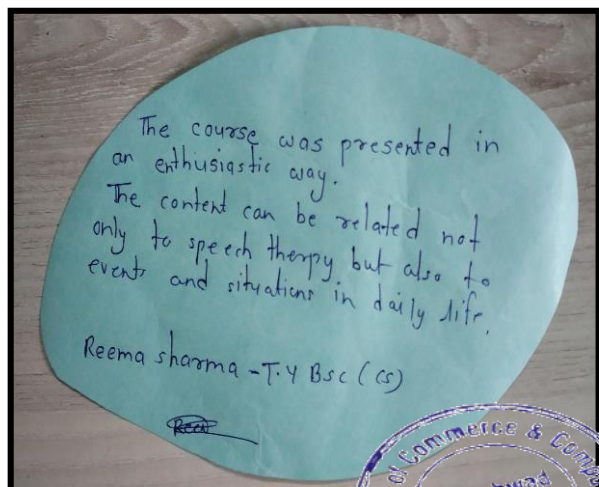 The course was presented in
an enthusiastic way.
The content can be related not
only to speech therpy but also to
events and situations in daily life.
Reema sharma - T.Y Bsc (CS)
of Commerce & Comp